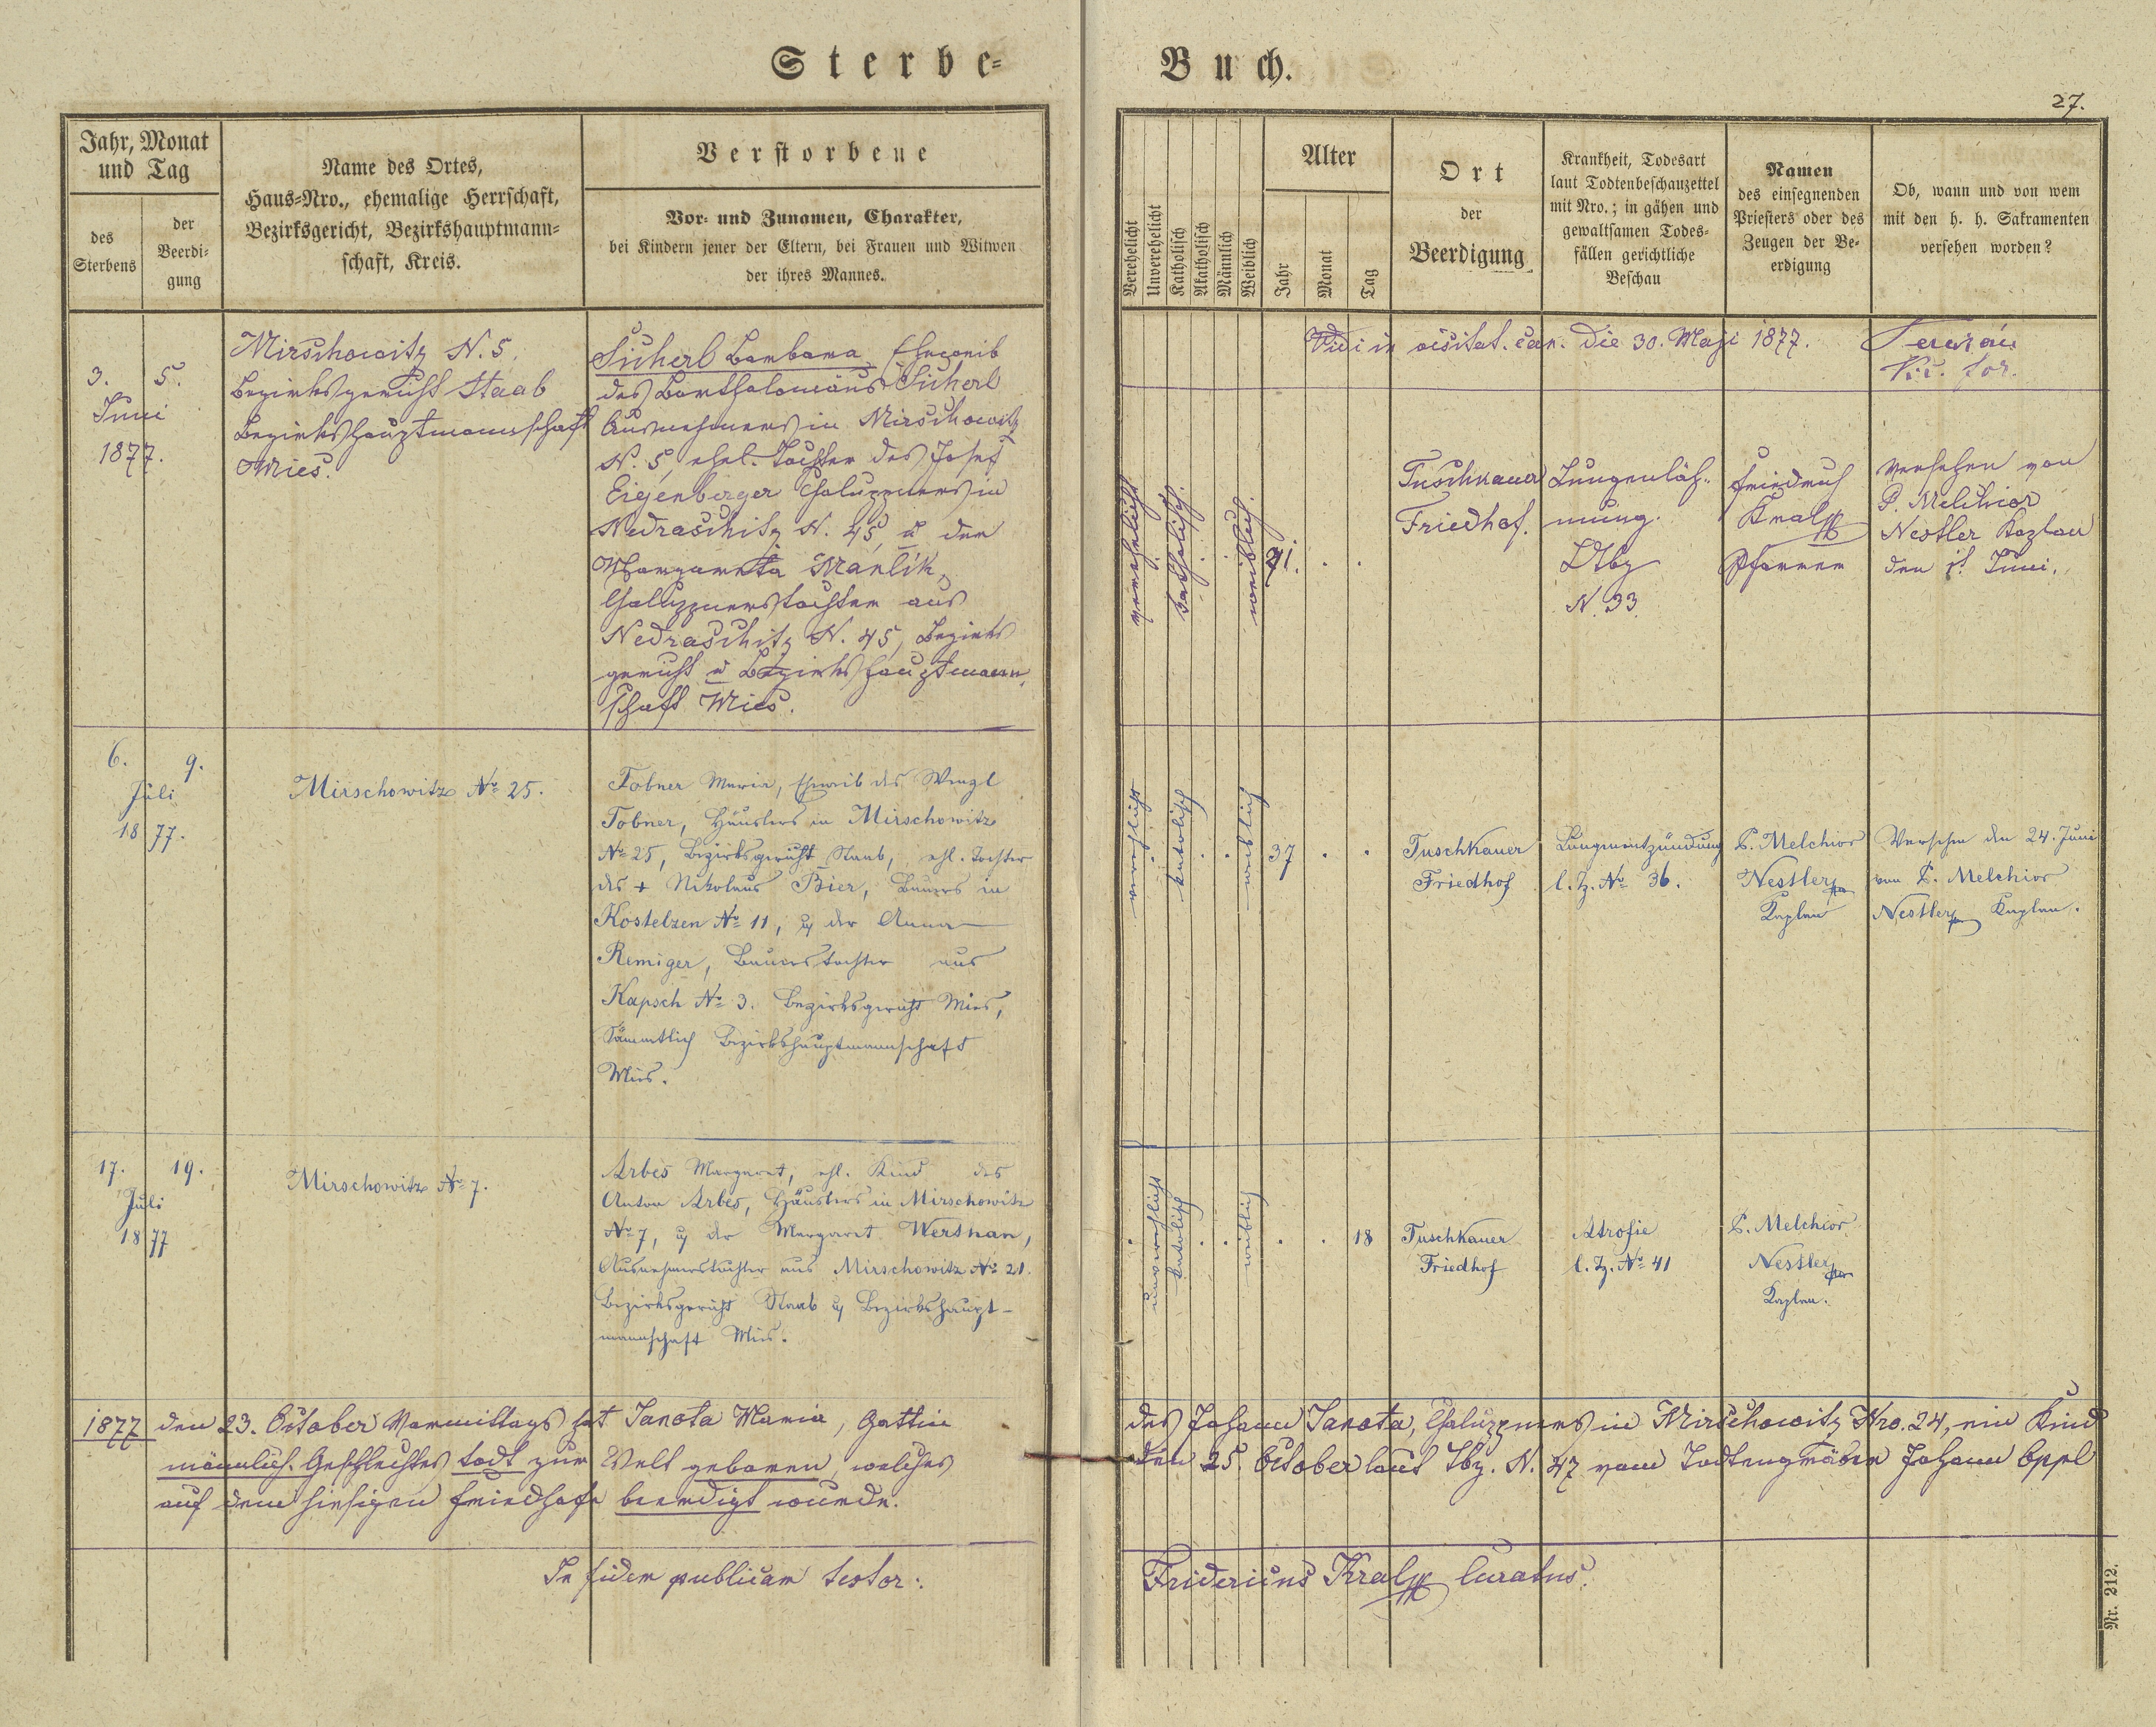 Sterbe-
Buch.
27.
Jahr, Monat
und Tag
des
Sterbens
der
Beerdi-
gung
Name des Ortes,
Haus-Nro., ehemalige Herrschaft,
Bezirksgericht, Bezirkshauptmann-
schaft, Kreis.
Verstorbene
Vor- und Zunamen, Charakter,
bei Kindern jener der Eltern, bei Frauen und Witwen
der ihres Mannes.
Verehelicht
Unverehelicht
Katholisch
Akatholisch
Männlich
Weiblich
Alter
Jahr
Monat
Tag
Ort
der
Beerdigung
Krankheit, Todesart
laut Todtenbeschauzettel
mit Nro.; in gähen und
gewaltsamen Todes-
fällen gerichtliche
Beschau
Namen
des einsegnenden
Priesters oder des
Zeugen der Be-
erdigung
Ob, wann und von wem
mit den h. h. Sakramenten
versehen worden?
Vidi in visitat. can. die 30. Maji 1877.
Vic. for.
3. 5.
Juni
1877.
Mirschowitz N. 5.
Bezirksgericht Staab
Bezirkshauptmannschaft
Mies.
Sicherl Barbara, Eheweib
des Bartholomäus Sicherl
Ausnehmers in Mirschowitz
N. 5, ehel. Tochter des Josef
Eigenberger Chaluppners in
Nedraschitz N. 45, u der
Margareta Mařlik,
Chaluppnerstochter aus
Nedraschitz N. 45, Bezirks
gericht u Bezirkshauptmann,
schaft Mies.
verehelicht
katholisch.
weiblich.
71.
Tuschkauer
Friedhof.
Lungenläh-
mung.
Ltbz
N. 33.
Friedrich
Kral
Pfarrer
Versehen von
P. Melchior
Nestler Kaplan
den 1. Juni.
6. 9.
Juli
1877.
Mirschowitz No 25.
Tobner Maria, Eheweib des Wenzl
Tobner, Häuslers in Mirschowitz
No 25, Bezirksgericht Staab, ehl. Tochter
des + Nikolaus Bier, Bauers in
Kostelzen No 11, u der Anna
Remiger, Bauerstochter aus
Kapsch No 3. Bezirksgericht Mies,
Sämmtlich Bezirkshauptmannschaft
Mies.
verehlicht
katolisch
weiblich
37
Tuschkauer
Friedhof
Lungenentzündung
l. Z. No 36.
P. Melchior
Nestler
Kaplan
Versehen den 24. Juni
von P. Melchior
Nestler Kaplan.
17. 19.
Juli
1877
Mirschowitz No 7.
Arbes Margaret, ehl. Kind des
Anton Arbes, Häuslers in Mirschowitz
No 7, u der Margaret Werthan,
Ausnehmerstochter aus Mirschowitz No 21.
Bezirksgericht Staab u Bezirkshaupt-
mannschaft Mies.
unverehlicht
katolisch
weiblich
18
Tuschkauer
Friedhof
Atrofie
l. Z. No 41
P. Melchior
Nestler
Kaplan.
1877 den 23. October Vormittags hat Janota Maria, Gattin des Johann Janota, Chaluppners in Mirschowitz Nro. 24, ein Kind
männlich. Geschlechtes todt zur Welt geboren, welches den 25. October laut Tbz. N. 47 vom Todtengräber Johann Oppl
auf dem hiesigen Friedhofe beerdigt wurde.
In fidem publicam testor: Fridericus Kral Curatus.
Nr. 212.